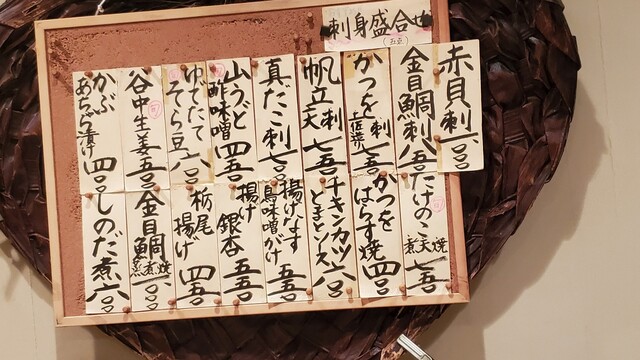 刺身盛合せ
(五点)
赤貝刺 一〇〇〇
金目鯛刺 八五〇
かつを刺 土佐造り 七五〇
帆立刺 天 七五〇
真だこ刺 七〇〇
山うど 酢味噌 四五〇
ゆでたて そら豆 六〇〇
谷中生姜 五五〇
かぶ あちゃら漬け 四〇〇
たけのこ 煮 天 焼 七五〇
かつを はらす焼 四〇〇
チキンカツ とまとソース 六八〇
揚げなす 鳥味噌がけ 五五〇
揚げ 銀杏 五五〇
栃尾 揚げ 四五〇
金目鯛 煮 焼 一〇〇〇
しのだ煮 六〇〇